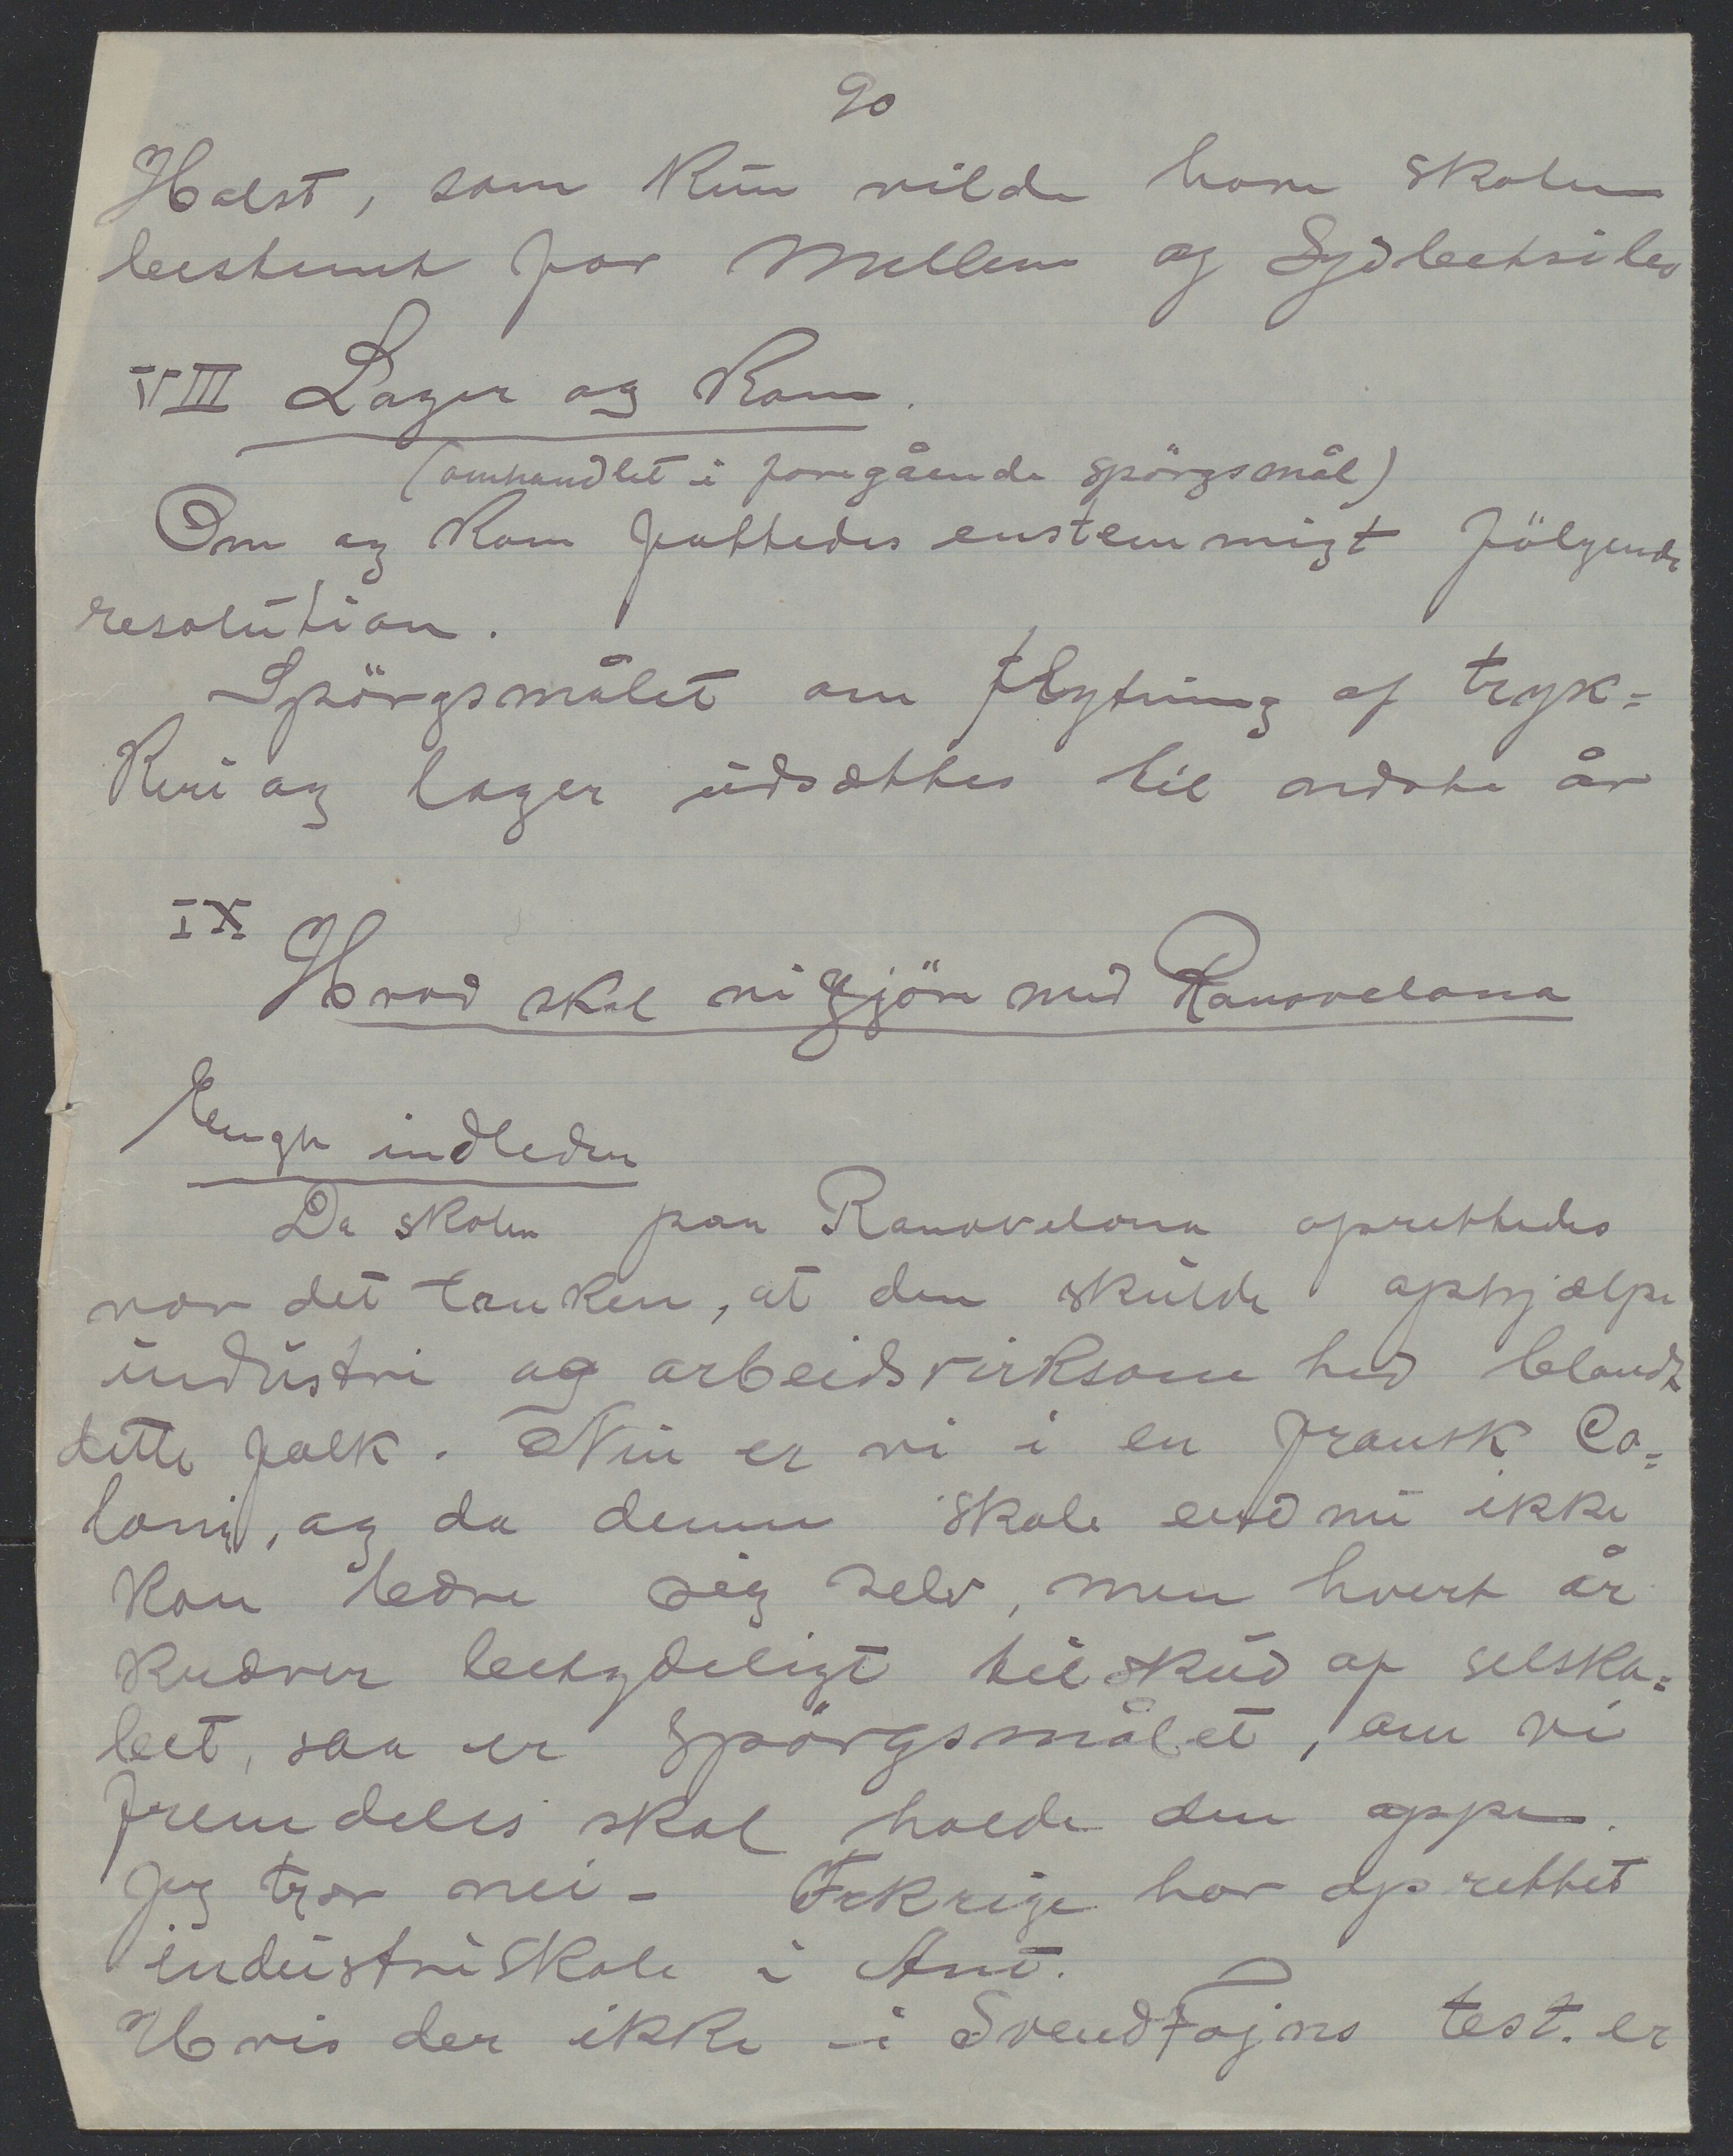 90
Holst, som kun vilde have skolen
bestemt for Mellem og Sydbetsileo
VIII Lager og Kom.
(omhandlet i foregående spörgsmål)
Om og Kom fattedes enstemmigt fölgende
resolution.
Spörgsmålet om flytning af tryk=
keri og lager udsættes til næste år
IX
Hvad skal vi gjöre med Ranovelona
Engh indleder
Da skolen paa Ranovelona oprettedes
var det tanken, at den skulde ophjælpe
industri og arbeidsvirksomhed blandt
dette folk. Nu er vi i en fransk Co=
loni, og da denne skole endnu ikke
kan bære sig selv, men hvert år
kræver betydeligt tilskud af selska=
bet, saa er spörgsmålet, om vi
fremdeles skal holde den oppe.
Jeg tror nei - Frkrige har oprettet
industriskole i Ant.
Hvis der ikke i Svend Fojns test. er